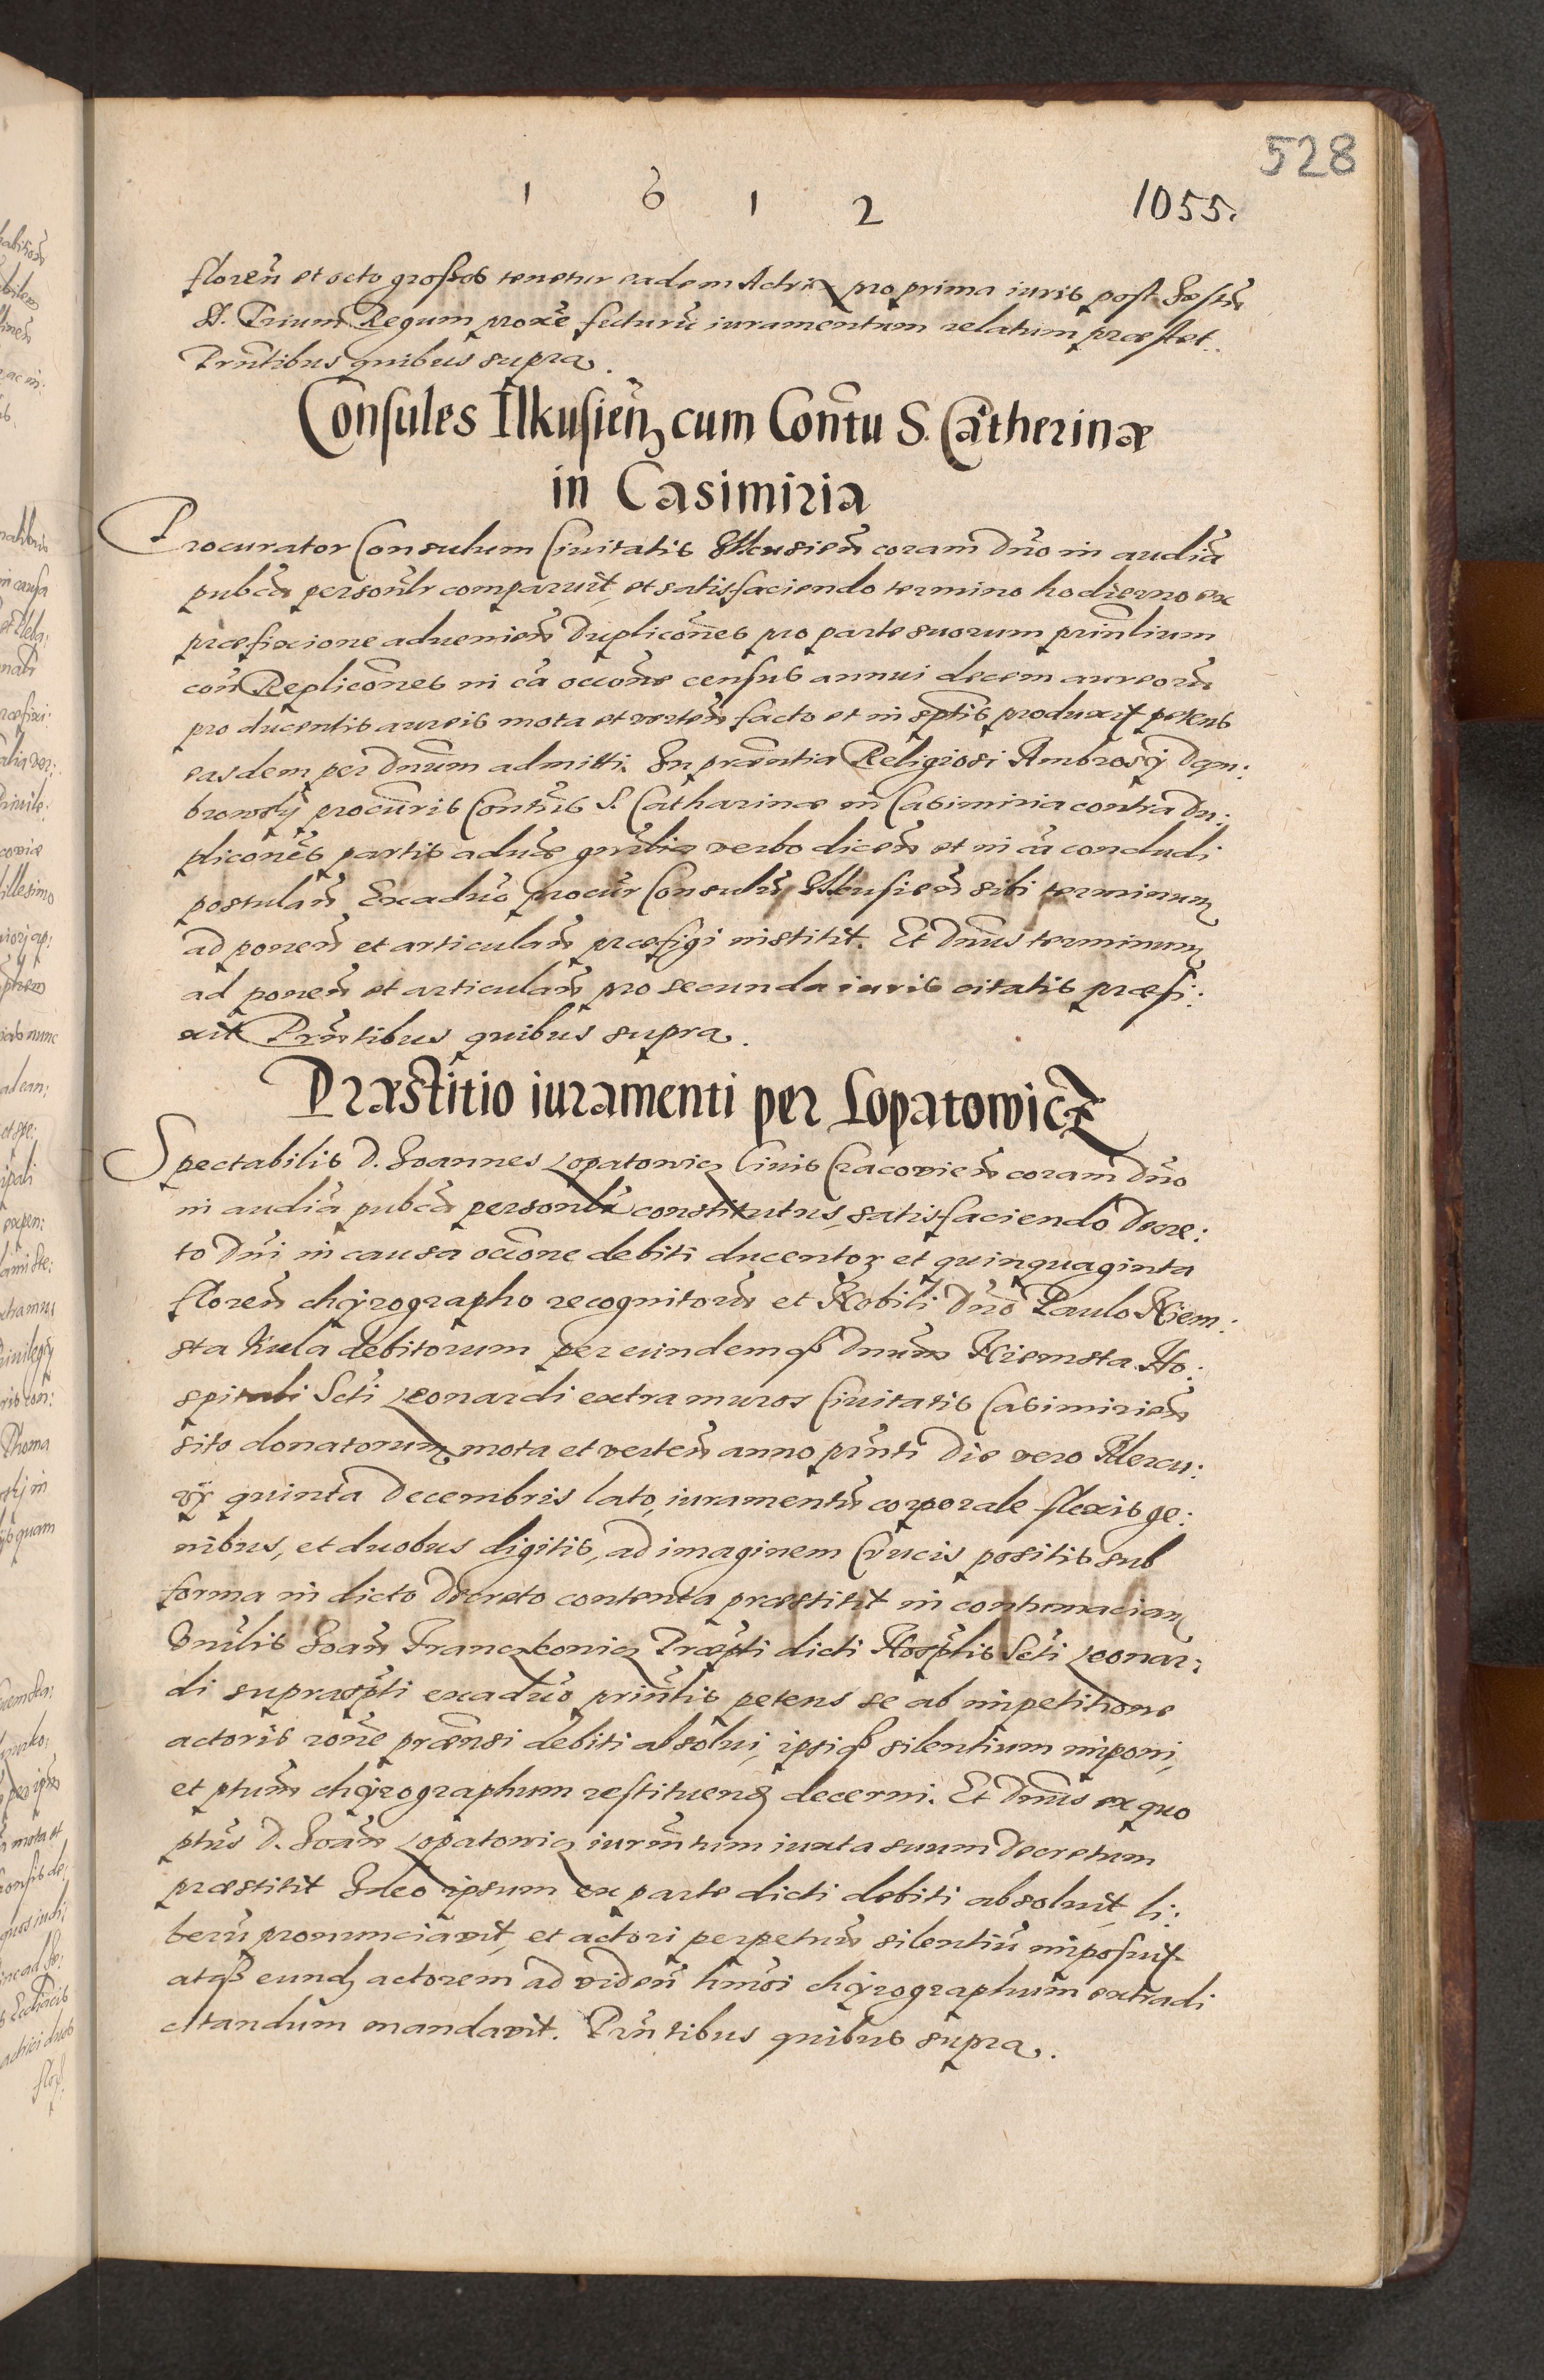 528
1 6 1 2
1055.
floren̄ et octo grossos tenetur eadem Actrix pro prima iuris post Festū
SS. Trium Regum proxē futurū iuramentum relatum præstet.
Prn̄tibus quibus supra.
Consules Ilkusien̄ cum Con̄tu S. Catherinæ
in Casimiria
Procurator Consulum Ciuitatis Ilkusien̄ coram Dn̄o in audiā
pubcā person̄lr comparuit, et satisfaciendo termino hodierno ex
præfixione aduenien̄ Duplicōnes pro parte suorum prin̄lium
con̄ Replicōnes in cā occōne census annui decem aureorū
pro ducentis aureis mota et verten̄ facto et in sptis produxit petens
easdem per Dnūm admitti. In præn̄tia Religiosi Ambrosÿ Dęm:
browskÿ procūris Conūtus S. Catharinæ in Casimiria contra Du:
plicōnes partis aduæ gn̄rlia verbo dicen̄ et in cā concludi
postulan̄. Exaduō procūr Consulū Ilkusien̄ sibi terminum
ad ponen̄ et articulan̄ præfigi institit. Et Dnūs terminum
ad ponen̄ et articulan̄ pro secunda iuris citatis præfi:
xit Prn̄tibus quibus supra.
Præstitio iuramenti per Lopatowicz
Spectabilis D. Joannes Lopatowicz Ciuis Cracovien̄ coram Dn̄o
in audiā pubcā person̄lr constitutus, satisfaciendo Decre:
to Dn̄i in causa occōne debiti ducentoꝝ et quinquaginta
floren̄ chÿrographo recognitorū et Nobili Dn̄o Paulo Niem:
sta Kula debitorum per eundemqꝫ Dnūm Niemsta Ho:
spitali Scti Leonardi extra muros Ciuitatis Casimirien̄
sito donatorum mota et verten̄ anno prn̄ti Die vero Mercu:
rÿ quinta Decembris lato, iuramentū corporale flexis ge:
nibus, et duobus digitis, ad imaginem Crucis positis sub
forma in dicto Decreto contenta præstitit in contumaciam
Vn̄rlis Joan̄ Franczkowicz Præpti dicti Hosptlis Scti Leonar:
di suprascpti exaduō prin̄lis petens se ab impetitione
actoris rōne præn̄si debiti absolui, ipsiqꝫ silentium imponi,
et ptum chÿrographum restituend decerni. Et Dnūs ex quo
ptus D. Joan̄ Lopatowicz iurm̄tum iuxta suum Decretum
præstitit Ideo ipsum ex parte dicti debiti absoluit, li:
berū pronunciauit, et actori perpetuū silentiū imposuit
atqꝫ eund actorem ad viden̄ hmōi chÿrographum extradi
citandum mandauit. Prn̄tibus quibus supra.